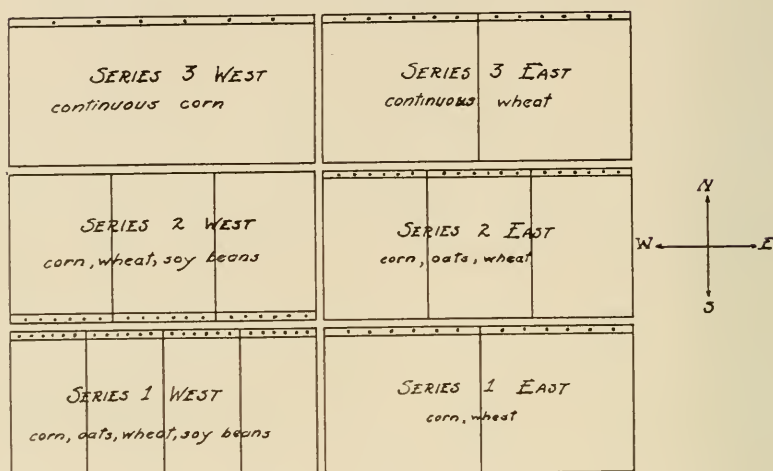 SERIES 3 WEST
continuous corn
SERIES 3 EAST
continuous wheat
SERIES 2 WEST
corn, wheat, soy beans
SERIES 2 EAST
corn, oats, wheat
N
W E
S
SERIES 1 WEST
corn, oats, wheat, soy beans
SERIES 1 EAST
corn, wheat